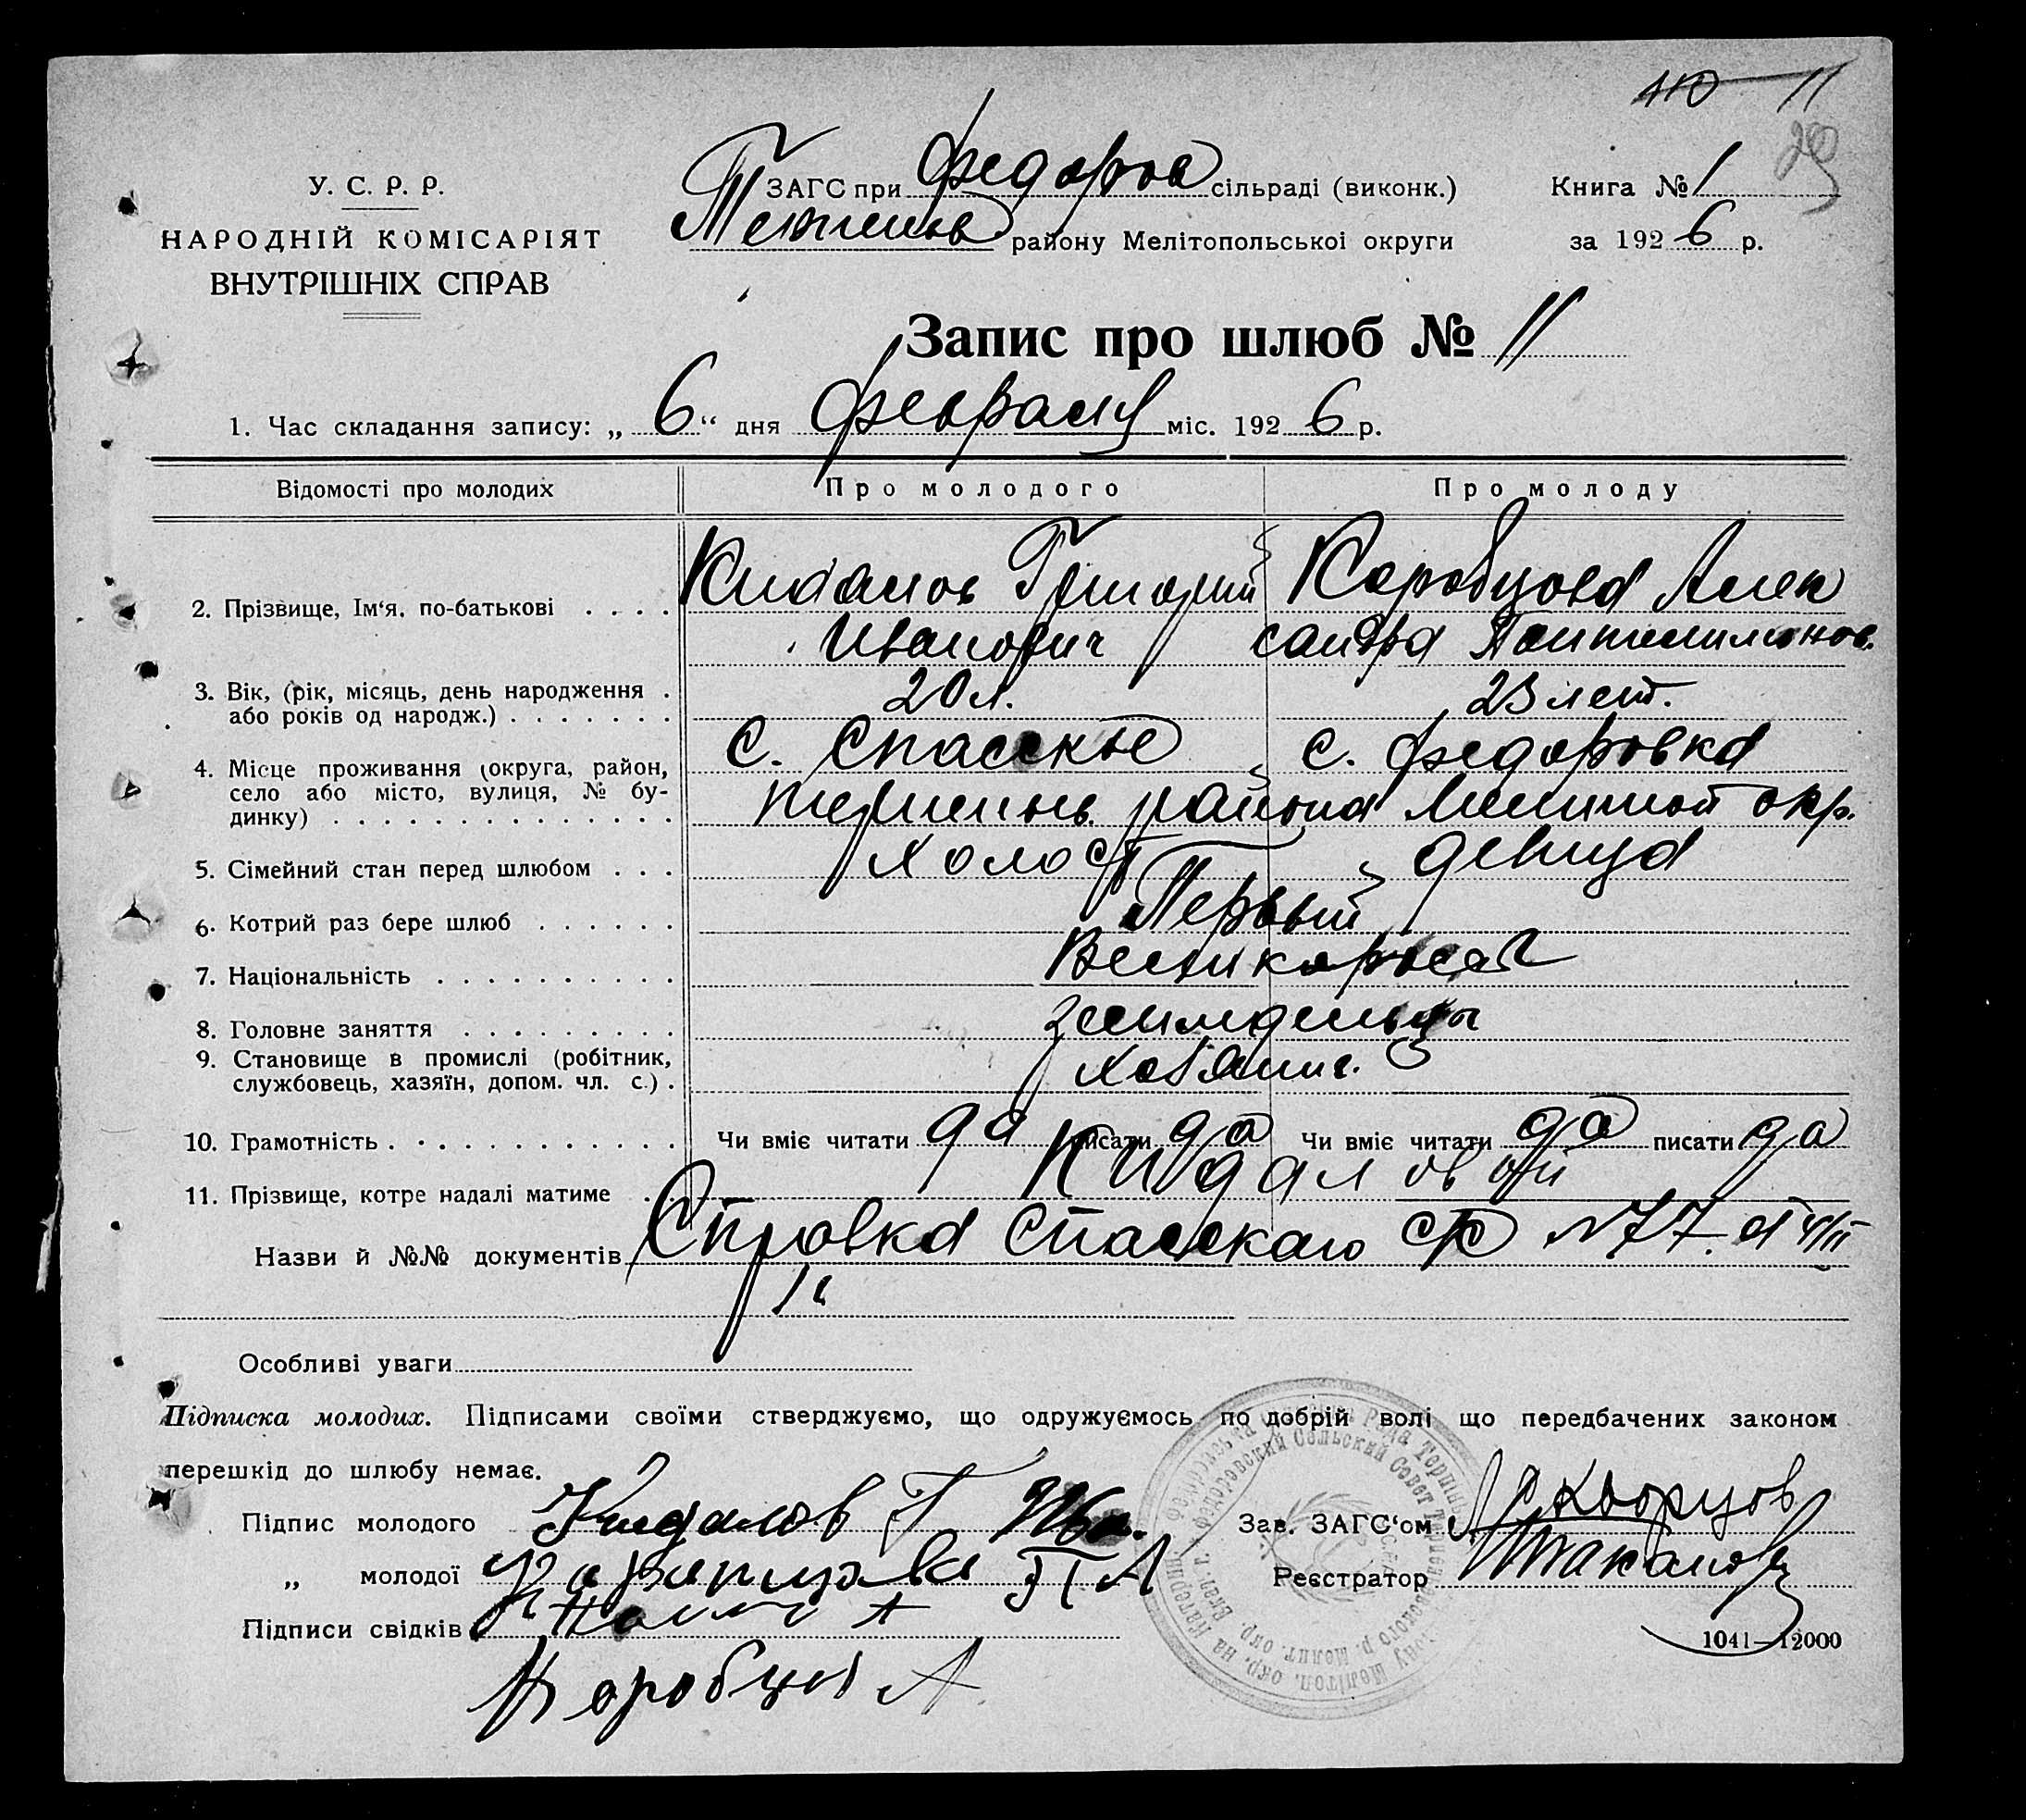 11
29
У. С. Р. Р.
НАРОДНІЙ КОМІСАРІЯТ
ВНУТРІШНІХ СПРАВ
ЗАГС при Федоров сільраді (виконк.) Книга № 1
району Мелітопольської округи за 1926 р.
Запис про шлюб № 11
1. Час складання запису: „6“ дня февраля міс. 1926 р.
Відомості про молодих Про молодого Про молоду
2. Прізвище, Ім‘я, по-батькові . . . . Кидалов Григорий Коробцова Алек
Иванович сандра Пантелимонов.
3. Вік, (рік, місяць, день народження . 20 л. 23 лет.
або років од народж.) . . . . . . .
4. Місце проживання (округа, район, с. Спасское с. Федоровка
село або місто, вулиця, № бу-
динку) . . . . . . . . . . . . . . терпень. района Мелитоп окр.
5. Сімейний стан перед шлюбом . . . Холост девица
6. Котрий раз бере шлюб . . . . . . Первый
7. Національність . . . . . . . . . . Великоросы
8. Головне заняття . . . . . . . . . земледельцы
9. Становище в промислі (робітник,
службовець, хазяїн, допом. чл. с.) .
10. Грамотність . . . . . . . . . . . . Чи вміє читати да писати да Чи вміє читати да писати да
11. Прізвище, котре надалі матиме . . Кидаловой
Назви й №№ документів Справка Спасскаго с/с № 77 от 4/II
Особливі уваги
Підписка молодих. Підписами своїми стверджуємо, що одружуємось по добрій волі що передбачених законом
перешкід до шлюбу немає.
Підпис молодого Кидалов Г Ив.
„ молодої П А
Підписи свідків
Коробцов А
Зав. ЗАГС‘ом Скворцов
Реєстратор
1041—12000
Федоровский Сельский Совет